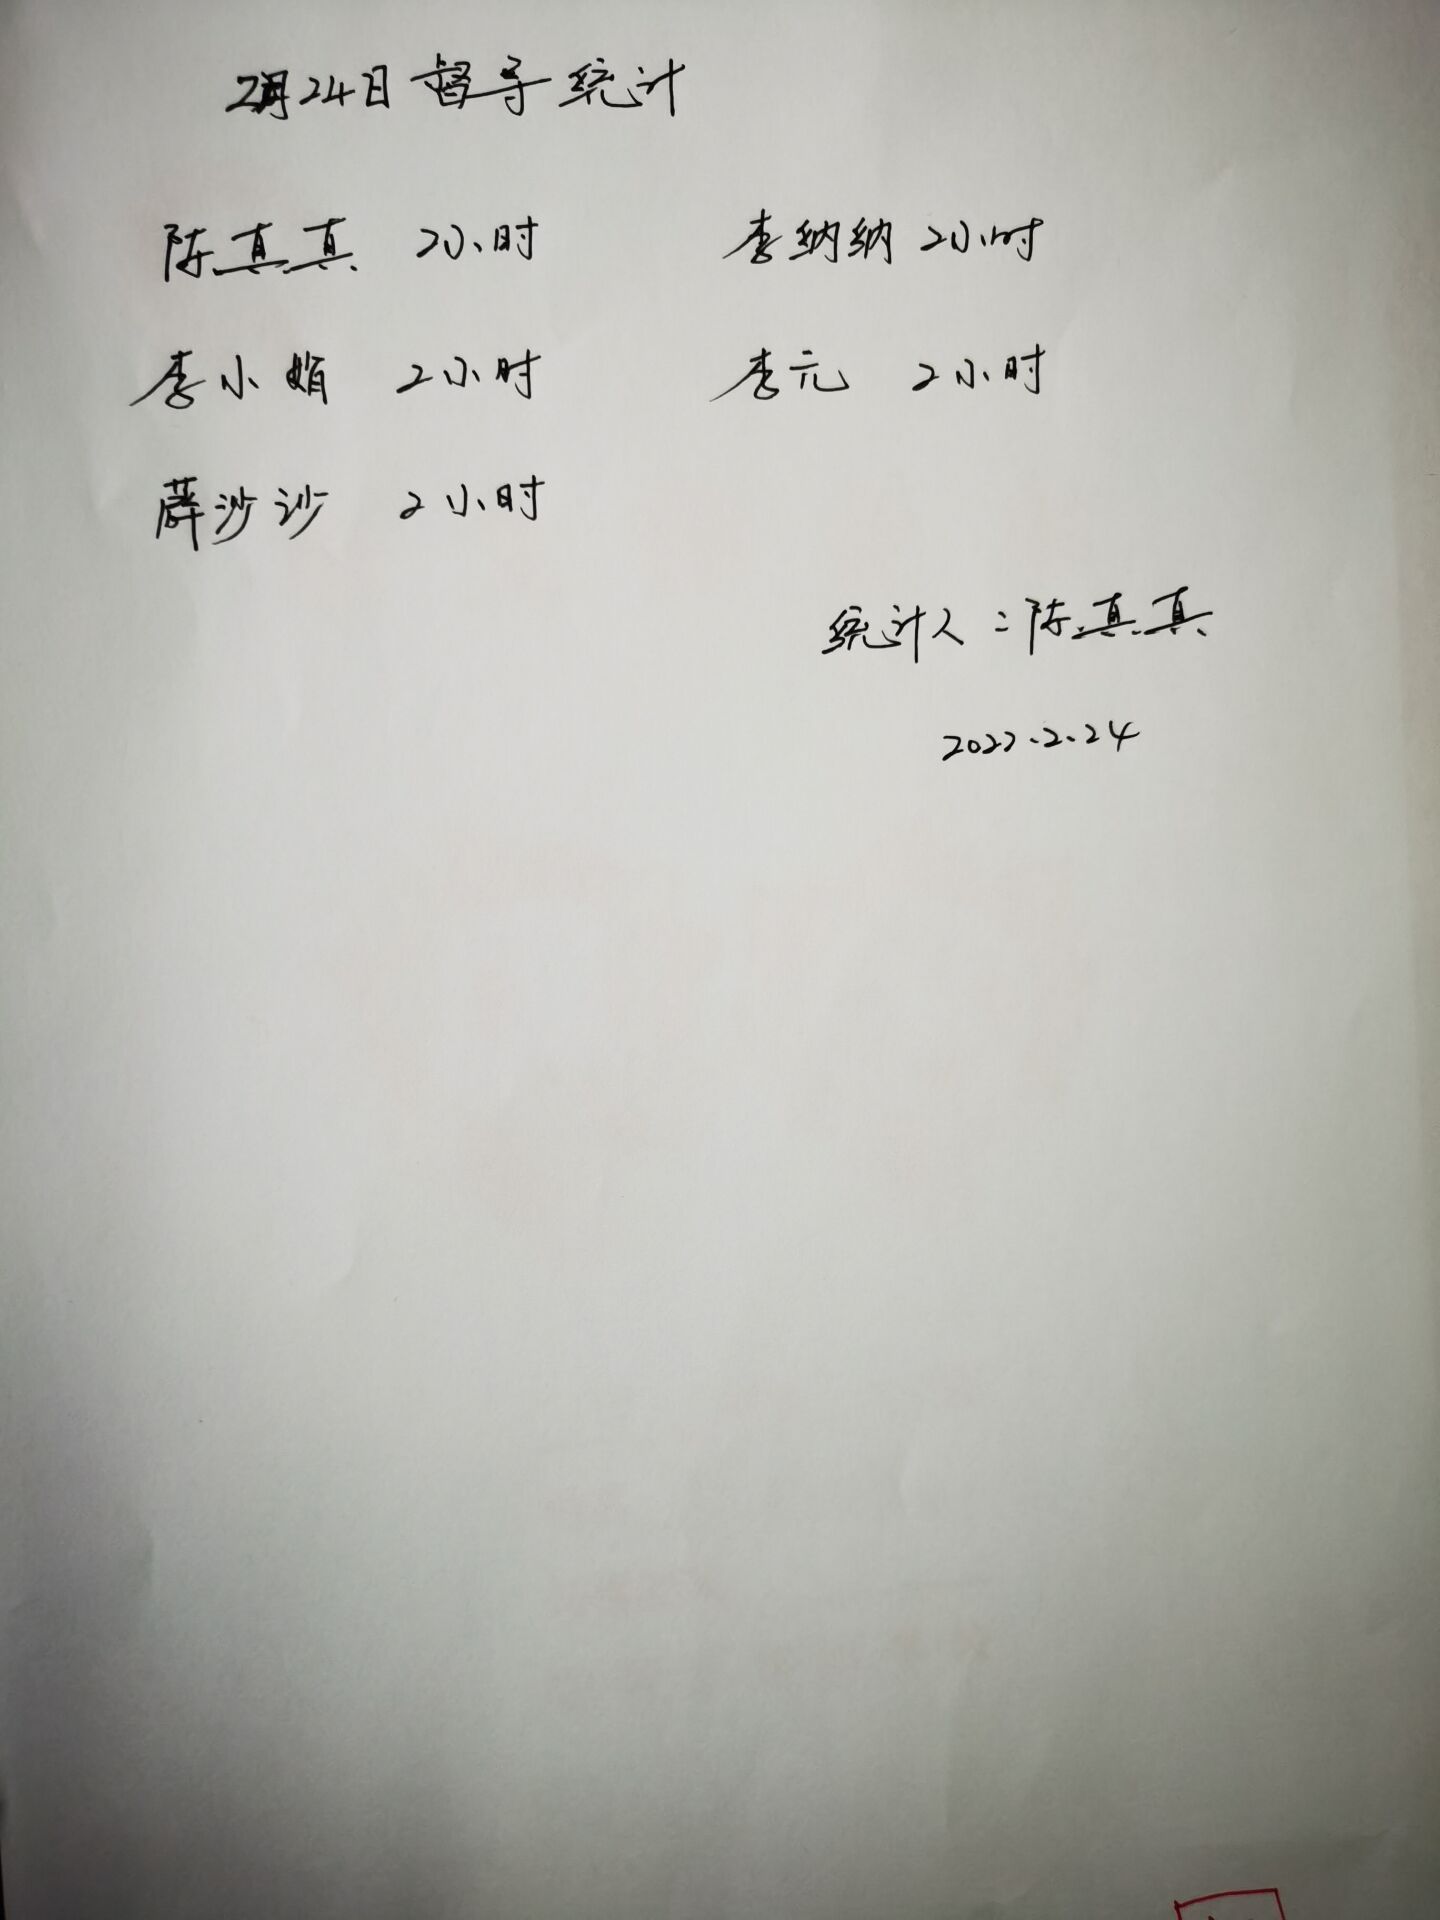 2月24日督导统计
陈真真 2小时 李纳纳 2小时
李小娟 2小时 李元 2小时
薛沙沙 2小时
统计人：陈真真
2022.2.24